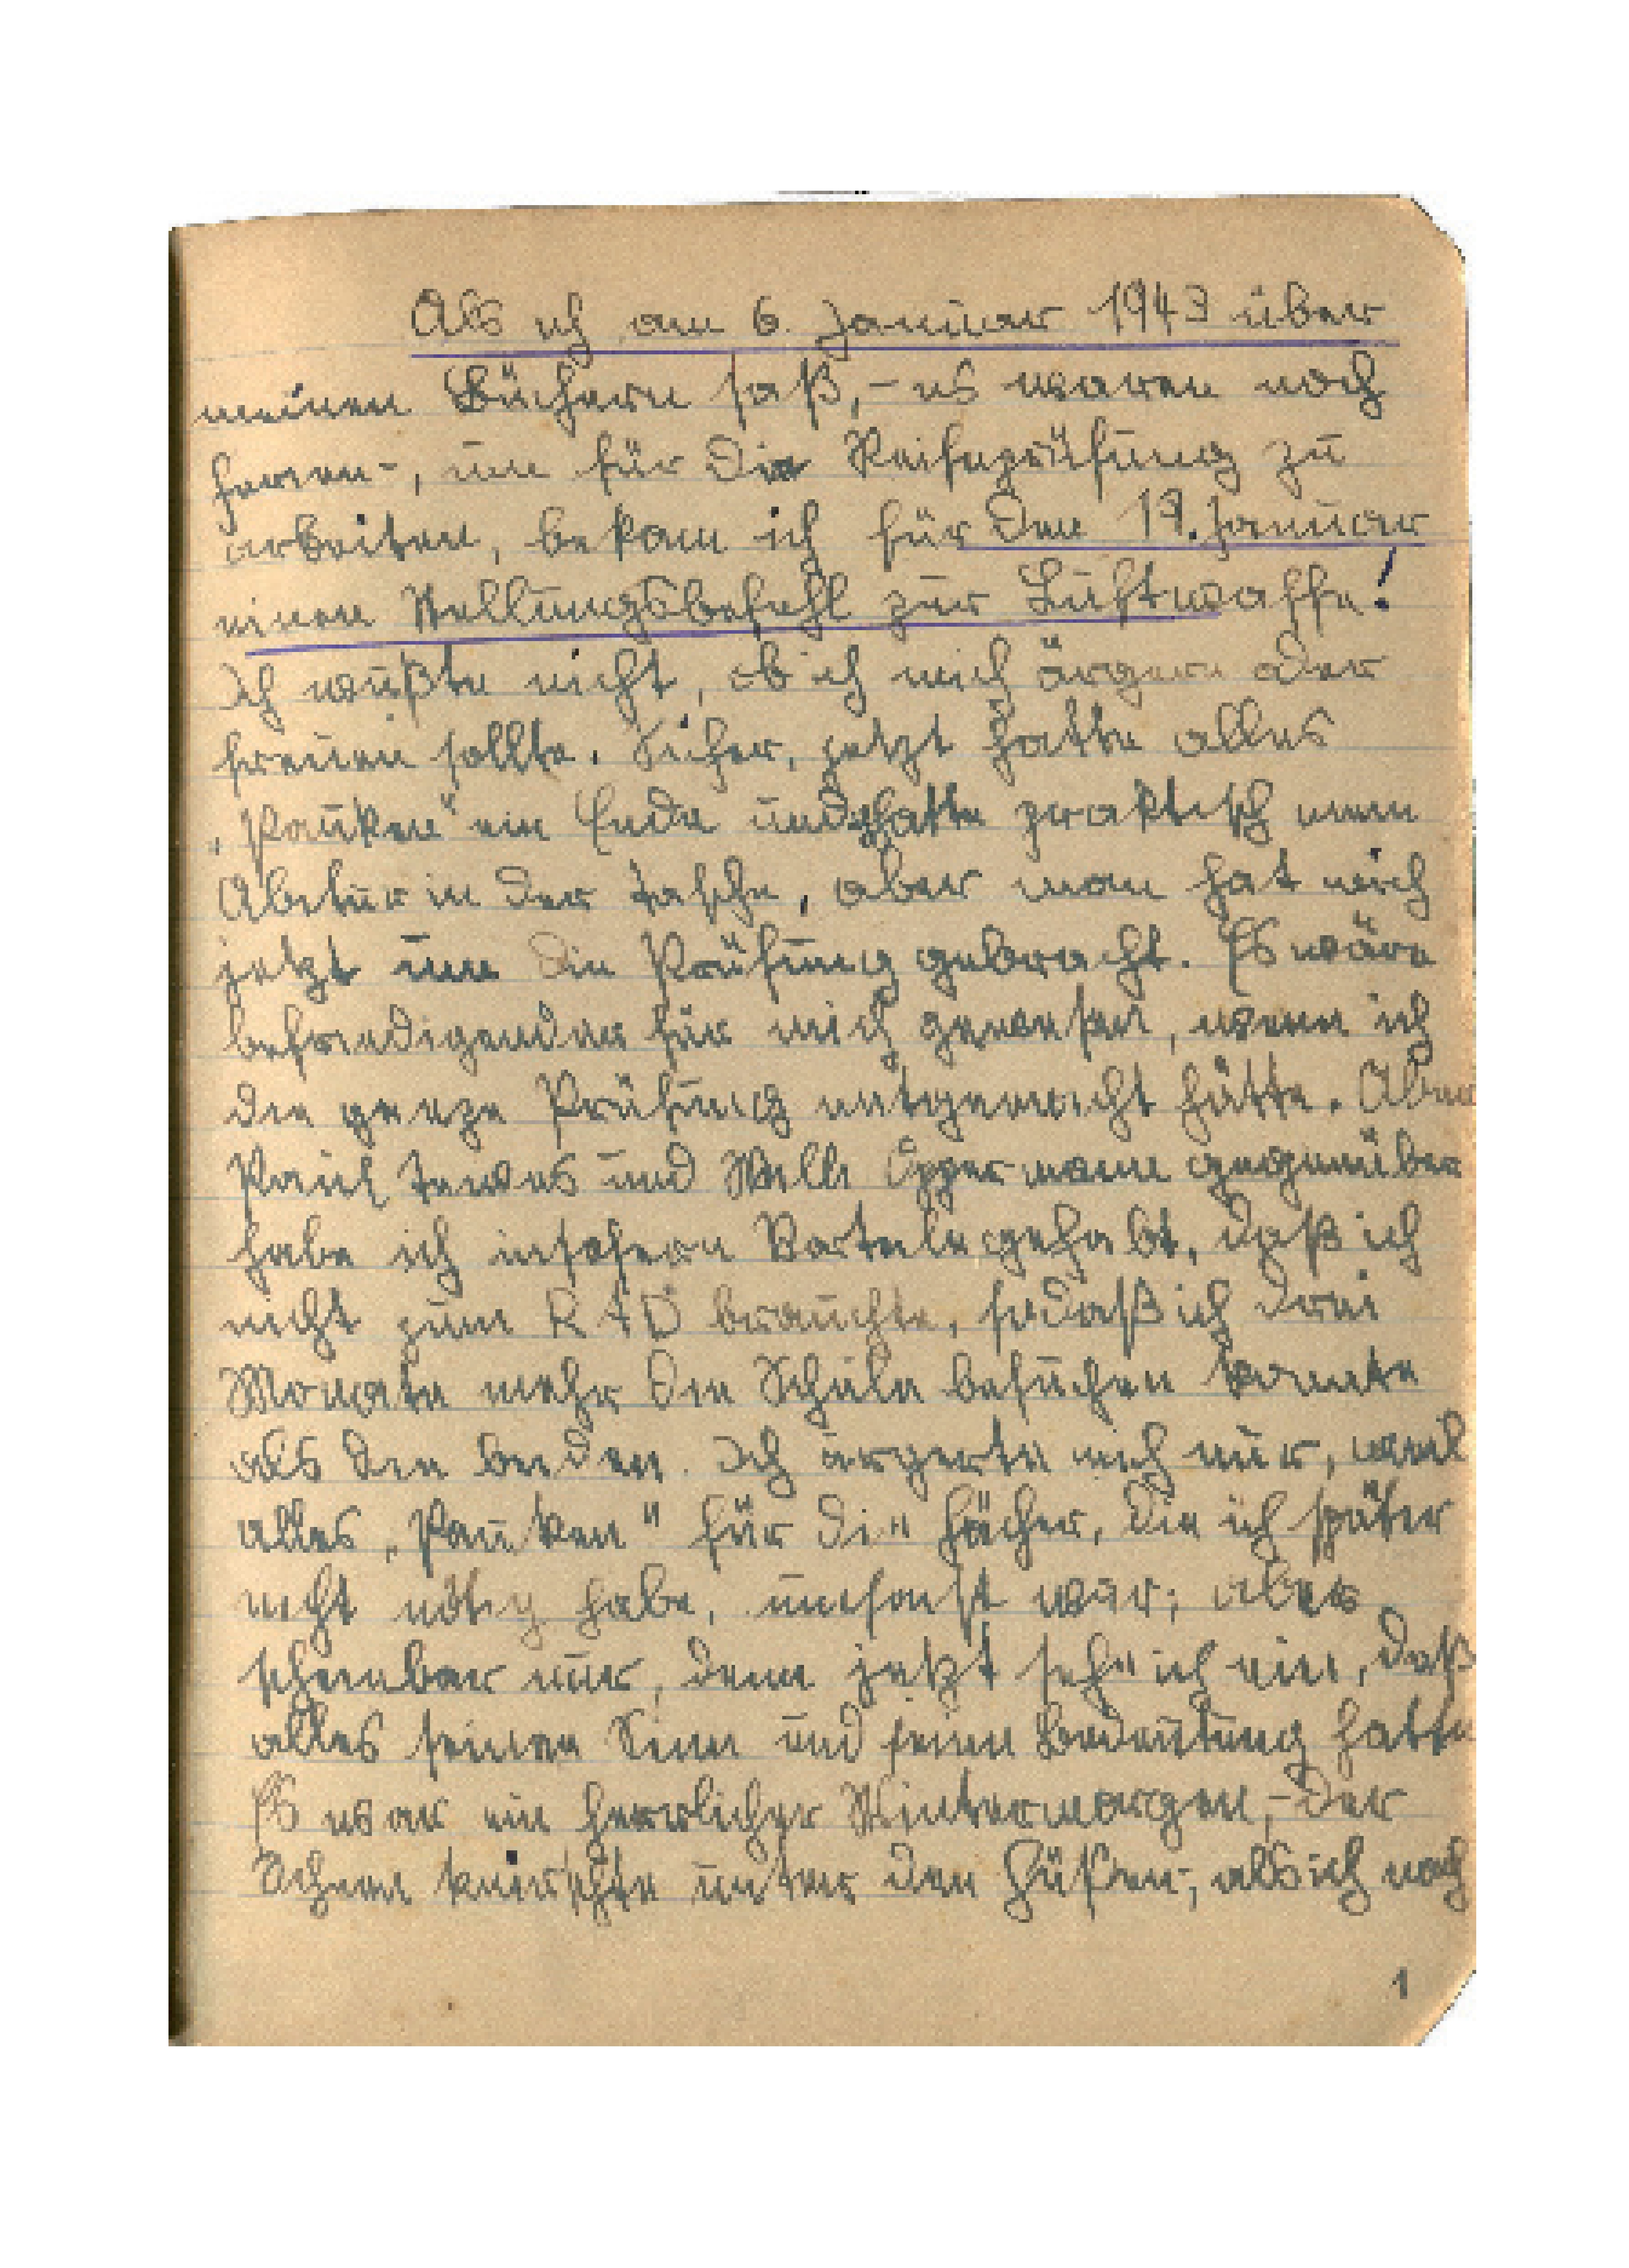 Als ich am 6. Januar 1943 über
meinen Büchern saß, - es waren noch
Ferien -, um für die Reifeprüfung zu
arbeiten, bekam ich für den 19. Januar
einen Stellungsbefehl zur Luftwaffe!
Ich wußte nicht, ob ich mich ärgern oder
freuen sollte. Sicher, jetzt hatte alles
„Pauken" ein Ende und hatte praktisch mein
Abitur in der Tasche, aber man hat mich
jetzt um die Prüfung gebracht. Es wäre
befriedigender für mich gewesen, wenn ich
die ganze Prüfung mitgemacht hätte. Aber
Paul Tewes und Willi Oppermann gegenüber
habe ich insofern Vorteile gehabt, daß ich
nicht zum RAD brauchte, sodaß ich drei
Monate mehr die Schule besuchen konnte
als die beiden. Ich ärgerte mich nur, weil
alles „Pauken" für die Fächer, die ich später
nicht nötig habe, umsonst war; aber
scheinbar nur, denn jetzt seh' ich ein, daß
alles seinen Sinn und seine Bedeutung hatte
Es war ein herrlicher Wintermorgen, - der
Schnee knirschte unter den Füßen -, als ich noch
1